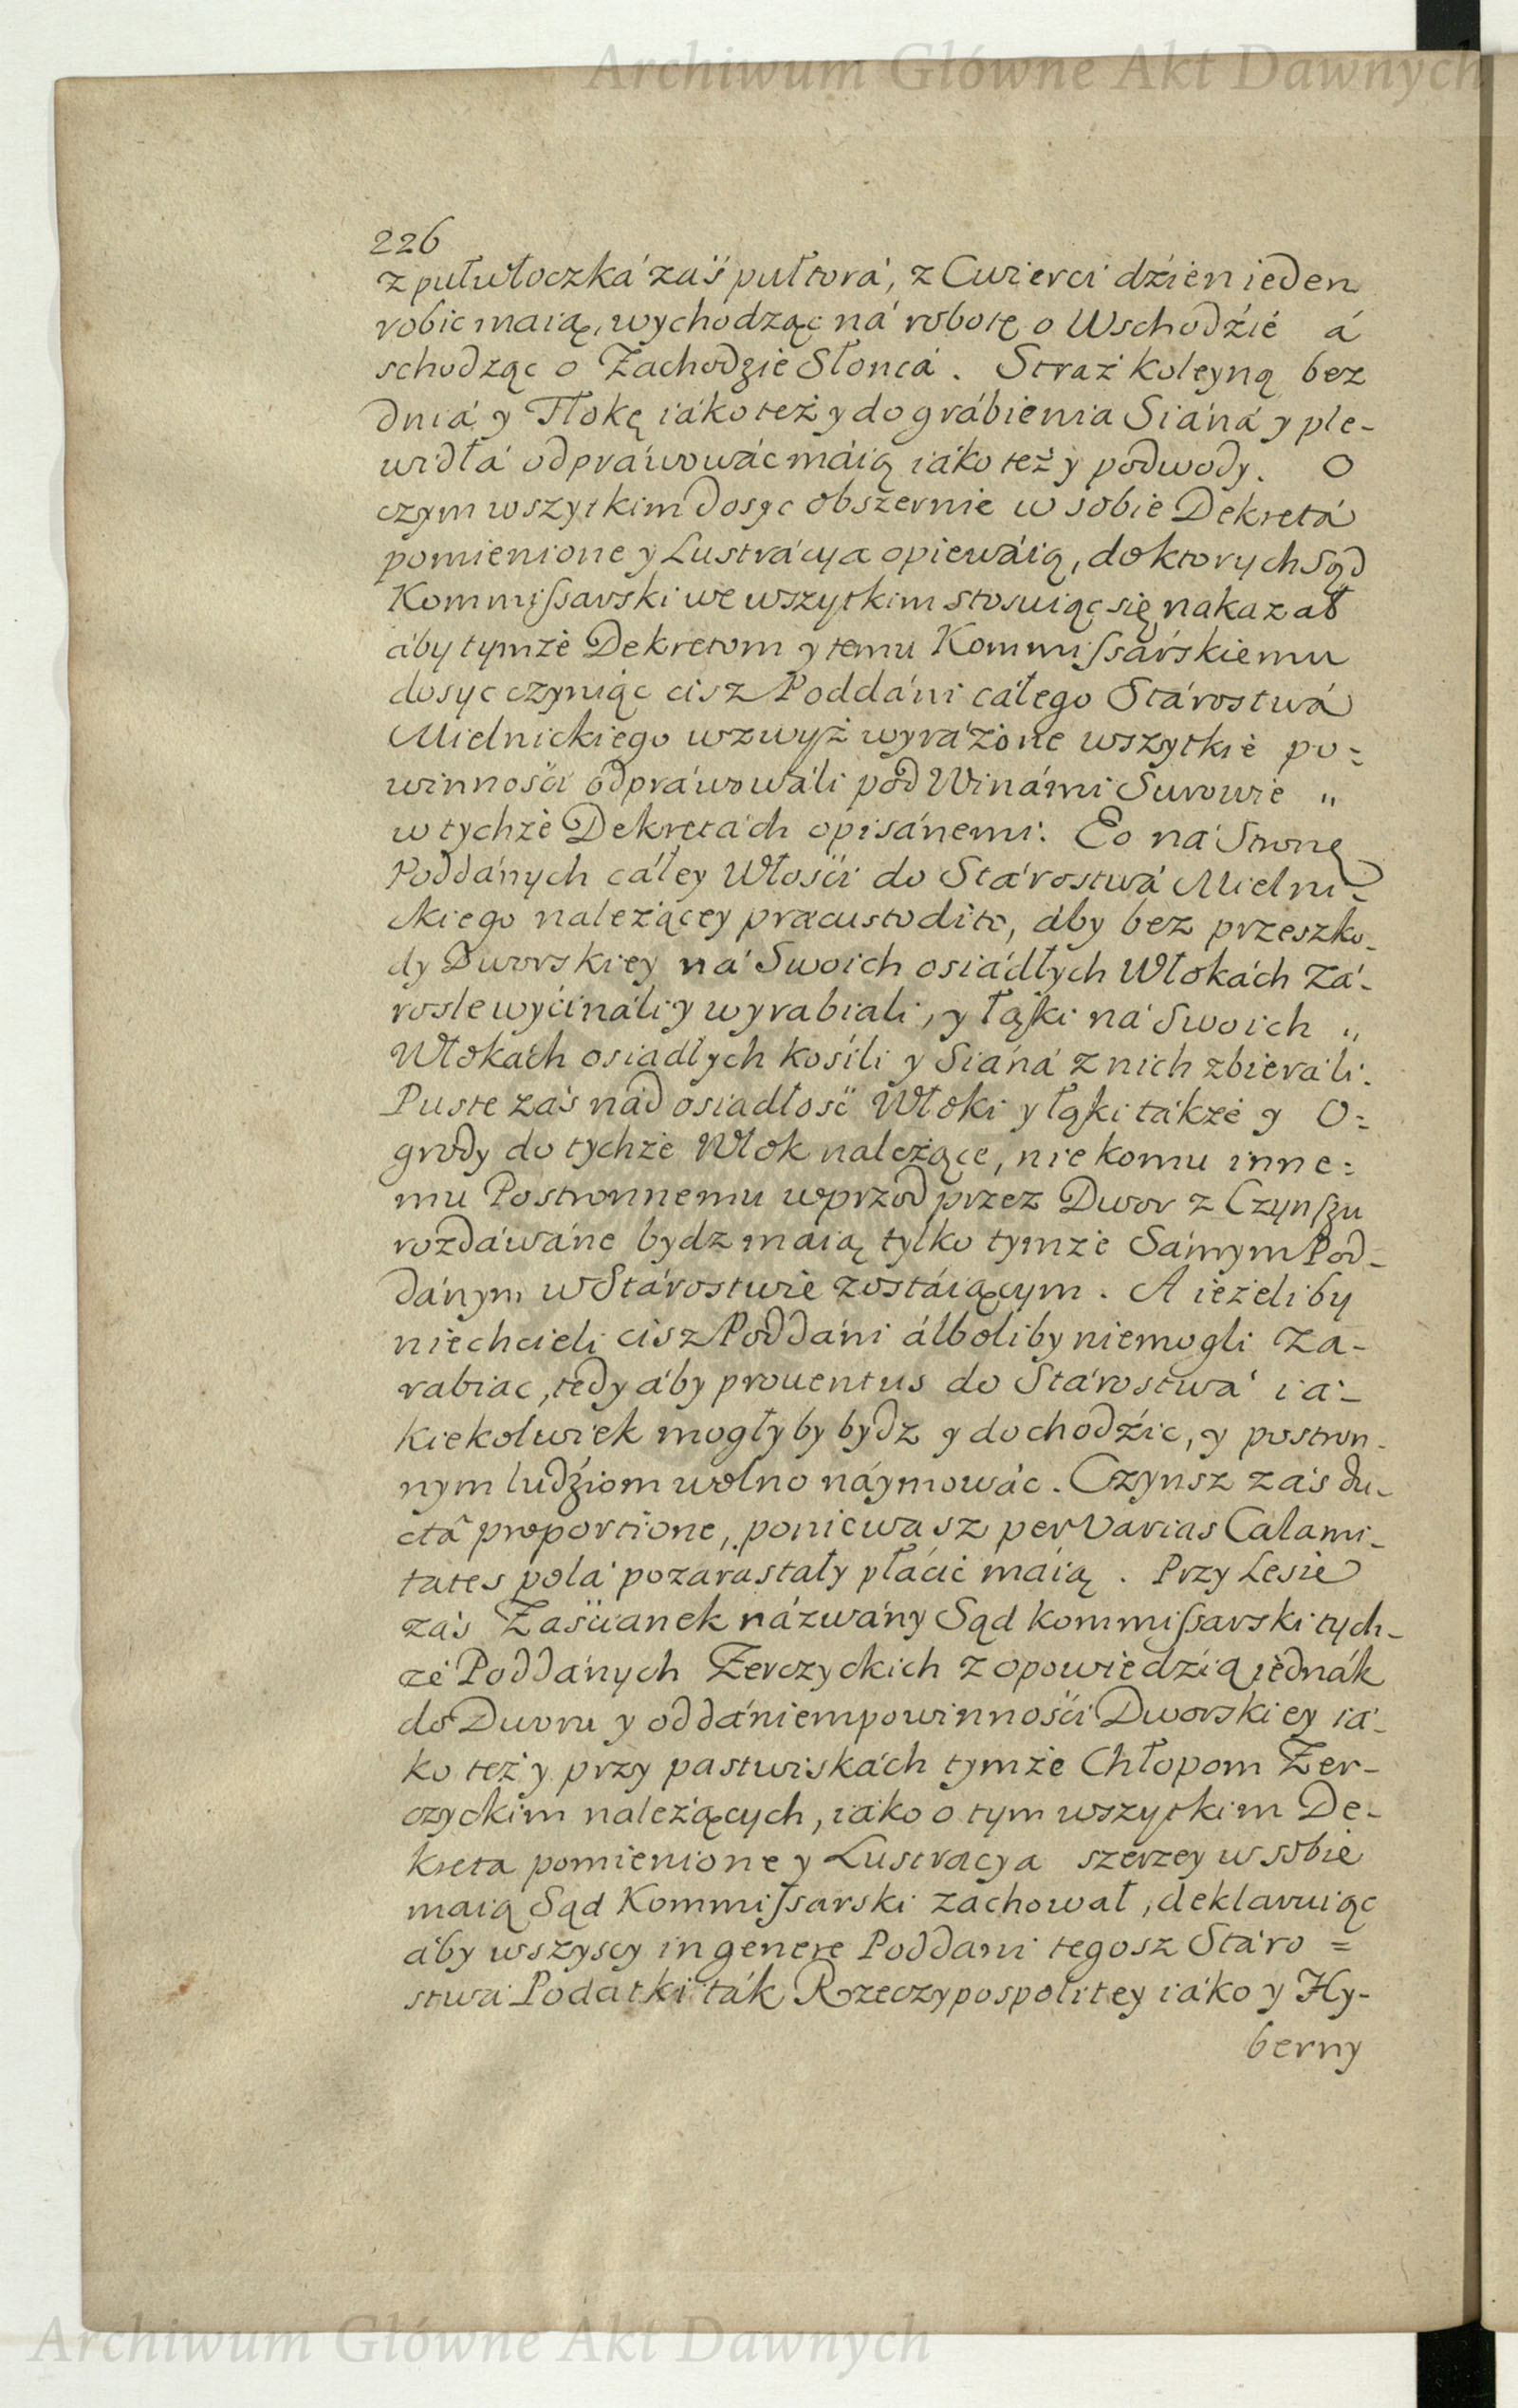 Archiwum Główne Akt Dawnych
226
z pułwłoczká zaś pułtorá, z Cwierci dźien ieden
robic maią, wychodząc ná robotę o Wschodźié á
schodząc o Zachodzie Słoncá. Straż koleyną bez
dniá y Tłokę iáko też y do grábienia Siáná y ple-
widłá odpráwowáć máią iáko też y podwody. O
czym wszytkim dosyc obszernie w sobie Dekretá
pomienione y Lustrácya opiewáią, do ktorych Sąd
Kommissarski we wszytkim stosuiąc się nakazał
áby tymże Dekretom y temu Kommissárskiemu
dosyc czyniąc cisz Poddáni całego Stárostwá
Mielnickiego wzwyż wyráżone wszytkie po=
winnośći odpráwowáli pod Winámi Surowie „
w tychże Dekretách opisánemi. Eo ná Stronę
Poddánych cáłey Włośći do Stárostwá Mielni=
ckiego należącey praecustodito, áby bez przeszko-
dy Dworskiey ná Swoich osiádłych Włokách Zá-
rosle wyćináli y wyrabiali, y łąki ná Swoich „
Włokách osiadłych kosili y Siáná z nich zbieráli.
Puste záś nád osiadłosć Włoki y łąki tákże y O=
grody do tychże Włok należące, nie komu inne=
mu Postronnemu wprzod przez Dwor z Czynszu
rozdáwáne bydz maią tylko tymże Sámym Pod-
dánym w Stárostwie zostáiącym. A ieżeliby
niechcieli cisz Poddáni álboliby niemogli Za-
rabiac, tedy áby prouentus do Stárostwá iá-
kiekolwiek mogłyby bydz y dochodźic, y postron-
nym ludźiom wolno náymowác. Czynsz záś du-
ctâ proportione, poniewasz per Varias Calami-
tates polá pozarastały płácić máią. Przy Lesie
záś Zaśćianek názwány Sąd kommissarski tych-
że Poddánych Zerczyckich z opowiedźią iednák
do Dworu y oddániem powinnośći Dworskiey iá-
ko też y przy pastwiskách tymże Chłopom Zer-
czyckim należących, iako o tym wszytkim De-
kreta pomienione y Lustracya szerzey w sobie
maią Sąd Kommissarski zachował, deklaruiąc
áby wszyscy in genere Poddani tegosz Stáro=
stwá Podatki ták Rzeczypospolitey iáko y Hy-
berny
Archiwum Główne Akt Dawnych